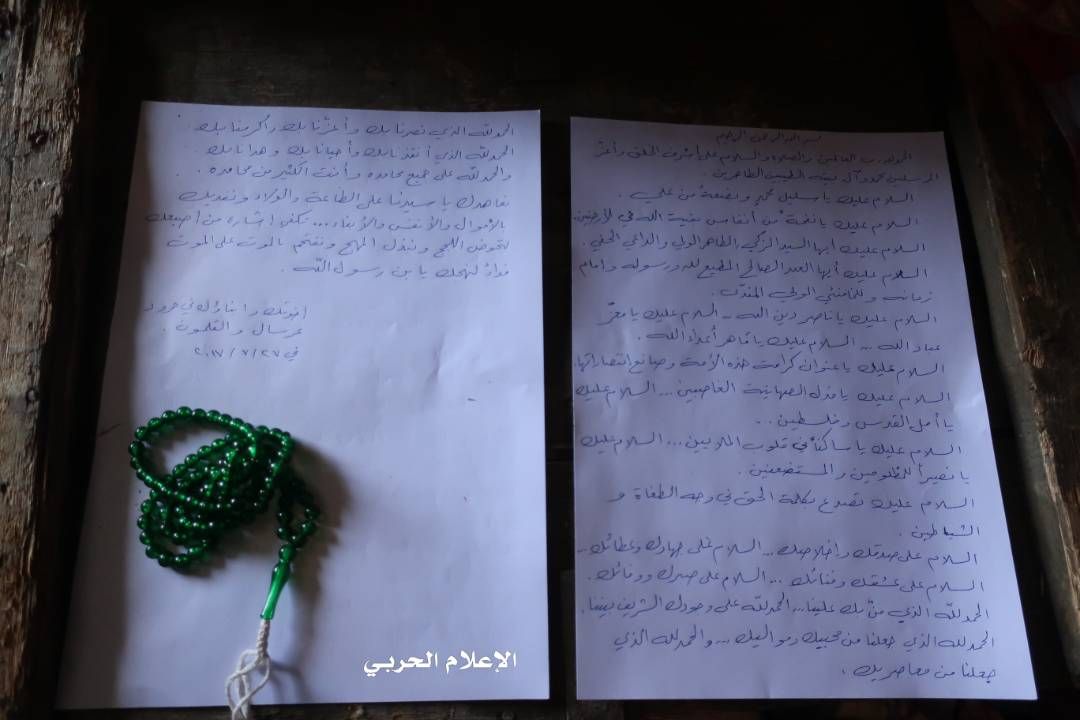 بسم الله الرحمن الرحيم
الحمد لله رب العالمين والصلاة والسلام على أشرف الخلق وأعزّ
المرسلين محمد وآل بيته الطيبين الطاهرين.
السلام عليك يا سليل محمدٍ وبضعةً من علي.
السلام عليك يا نفحةً من أنفاس بقية الله في الأرضين
السلام عليك أيها السيد الزكي الطاهر الولي والداعي الحفي.
السلام عليك أيها العبد الصالح المطيع لله ورسوله وإمام
زمانه وللخامنئي الولي المفدّى.
السلام عليك يا ناصر دين الله .. السلام عليك يا معزّ
عباد الله .. السلام عليك يا قاهر أعداء الله.
السلام عليك يا عنوان كرامة هذه الأمة وصانع انتصاراتها.
السلام عليك يا مذل الصهاينة الغاصبين ... السلام عليك
يا أمل القدس وفلسطين ..
السلام عليك يا ساكناً في قلوب الملايين ... السلام عليك
يا نصيراً للمظلومين والمستضعفين.
السلام عليك تصدع بكلمة الحق في وجه الطغاة و
الشياطين.
السلام على صدقك وإخلاصك ... السلام على جهادك وعطائك ..
السلام على عشقك وفنائك ... السلام على صبرك ووفائك.
الحمد لله الذي منّ بك علينا .. الحمد لله على وجودك الشريف بيننا.
الحمد لله الذي جعلنا من محبيك ومواليك ... والحمد لله الذي
جعلنا من معاصريك.
الحمد لله الذي نصرنا بك وأعزّنا بك وأكرمنا بك.
الحمد لله الذي أنقذنا بك وأحيانا بك وهدانا بك.
والحمد لله على جميع محامده وأنت الكثير من محامده..
نعاهدك يا سيدنا على الطاعة والولاء ونفديك
بالأموال والأنفس والأبناء ... تكفي إشارة من إصبعك
لنخوض اللجج ونبذل المهج ونقتحم بالموت على الموت
فداءً لنهجك يا بن رسول الله.
إخوتك وأبناؤك في جرود
عرسال والقلمون.
في ٢٠١٧/٧/٢٧
الإعلام الحربي